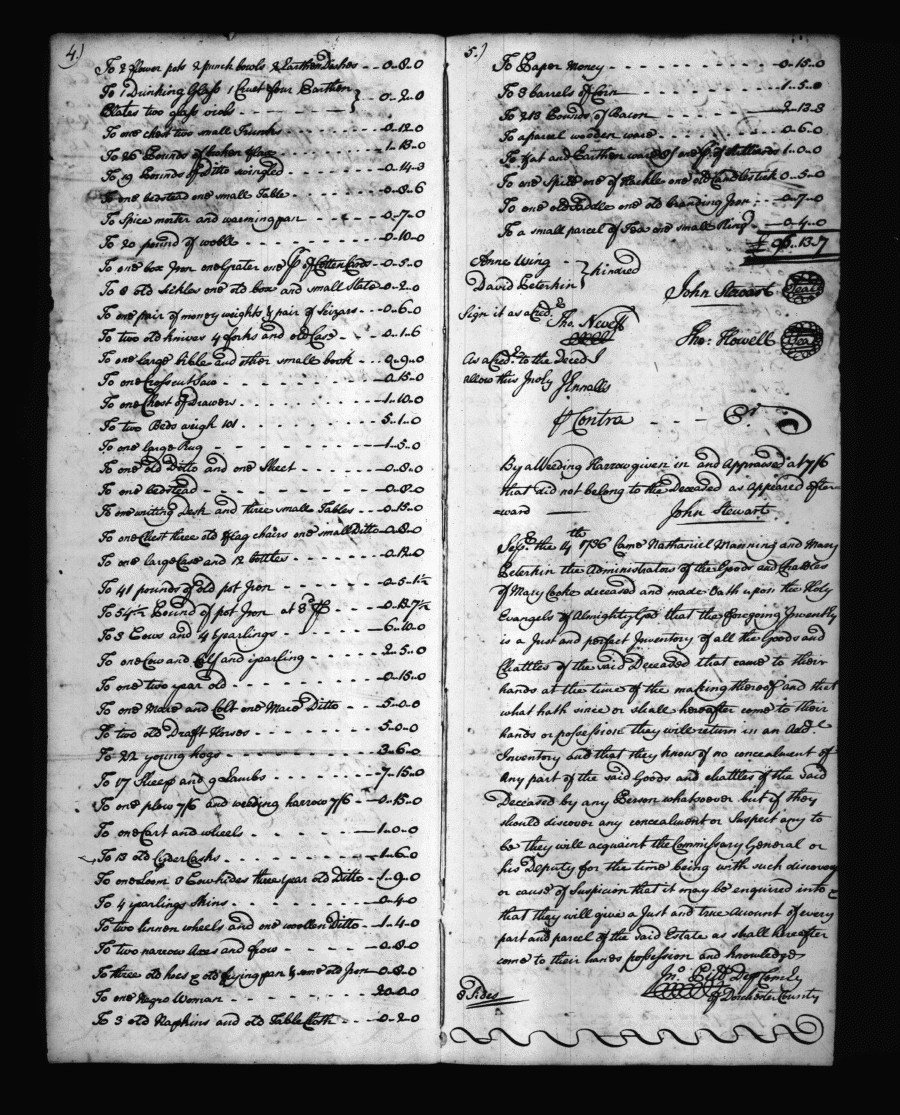 4.)
To 2 flower pots 2 punch bowls 2 Earthen Dishes - - 0..8..0
To 1 Drinking Glass 1 Cruet four Earthen
Plates two glass vials - - - 0..2..0
To one chest two small Trunks - - - 0..12..0
To 26 Pounds of broken flax - - - 1..13..0
To 19 Pounds of Ditto swingled - - - 0..14..3
To one bedstead one small Table - - - 0..8..6
To Spice morter and warming pan - - - 0..7..0
To 20 pound of wooll - - - 0..10..0
To one box Iron one Grater one pr of Cotten Cards - - 0..5..0
To 8 old sickles one old box and small State 0..2..0
To one pair of money weights & pair of Scizars - - - 0..6..0
To two old knives 4 forks and old Case - - 0..1..6
To one large bible and other small book - - 0..9..0
To one Croscut Saw - - - 0..15..0
To one Chest of Drawers - - - 1..10..0
To two Beds weigh 101 - - - 5..1..0
To one large Rug - - - 1..5..0
To one old Ditto and one Sheet - - - 0..8..0
To one bedstead - - - 0..8..0
To one writing Desk and three small Tables - - 0..15..0
To one Chest three old flag chairs one small Ditto 0..8..0
To one large Case and 12 bottles - - - 0..12..0
To 41 pounds of old pot Iron - - - 0..5..1½
To 54½ Pound of pot Iron at 3d p lb - - - 0..13..7½
To 3 Cows and 4 yearlings - - - 6..10..0
To one Cow and Calf and yearling - - - 2..5..0
To one two year old - - - 0..15..0
To one Mare and Colt one Mare Ditto - - - 5..0..0
To two old Draft Horses - - - 5..0..0
To 22 young hogs - - - 3..6..0
To 17 Sheep and 9 Lambs - - - 7..15..0
To one plow 7/6 and weeding harrow 7/6 - - 0..15..0
To one Cart and wheels - - - 1..0..0
To 13 old Cyder Casks - - - 1..6..0
To one Loom 3 Cow hides three year old Ditto - 1..9..0
To 4 yearlings Skins - - - 0..4..0
To two linnen wheels and one woollen Ditto - - 1..4..0
To two narrow Axes and frow - - - 0..8..0
To three old hoes & old frying pan & some old Iron 0..8..0
To one Negro Woman - - - 20..0..0
To 3 old Napkins and old Table Cloth - - - 0..2..0
5.)
To Paper Money - - - 0..15..0
To 3 barrels of Corn - - - 1..5..0
To 213 Pounds of Bacon - - - 2..13..3
To a parcel wooden ware - - - 0..6..0
To fat and Earthen ware & one pr. of Stilliards 1..0..0
To one Spitt one of Hackle one old Candlestick 0..5..0
To one old Saddle one old branding Iron - - 0..7..0
To a small parcel of Tea one small Ring - - 0..4..0
£ 95..13..7
Anne Wing
David Peterkin } kindred
John Stewart Seal
Sign it as a Cred.r
Tho. Nevett
Tho: Howell Seal
As a Cred.r to the Deced I
allow this Invty J Ennalls
p Contra - - - Cr
By a Weeding Harrow given in and Appraised at 7/6
that did not belong to the Deceased as appeared after
=ward
John Stewart
Sept. the 14th 1736 Came Nathaniel Manning and Mary
Peterkin the Administrators of the Goods and Chattles
of Mary Cooke deceased and made Oath upon the Holy
Evangels of Almighty God that the foregoing Inventory
is a Just and perfect Inventory of all the Goods and
Chattles of the said Deceased that came to their
hands at the time of the making thereof and that
what hath since or shall hereafter come to their
hands or possession they will return in an Add.l
Inventory and that they know of no concealment of
any part of the said Goods and chattles of the Said
Deceased by any Person whatsoever but if they
should discover any concealment or Suspect any to
be they will acquaint the Commissary General or
his Deputy for the time being with such discovery
or cause of Suspicion that it may be enquired into &
that they will give a Just and true Account of every
part and parcel of the said Estate as shall hereafter
come to their hands possession and knowledge
Jno. Pitt Dep Comry
of Dorchester County
8 Sides